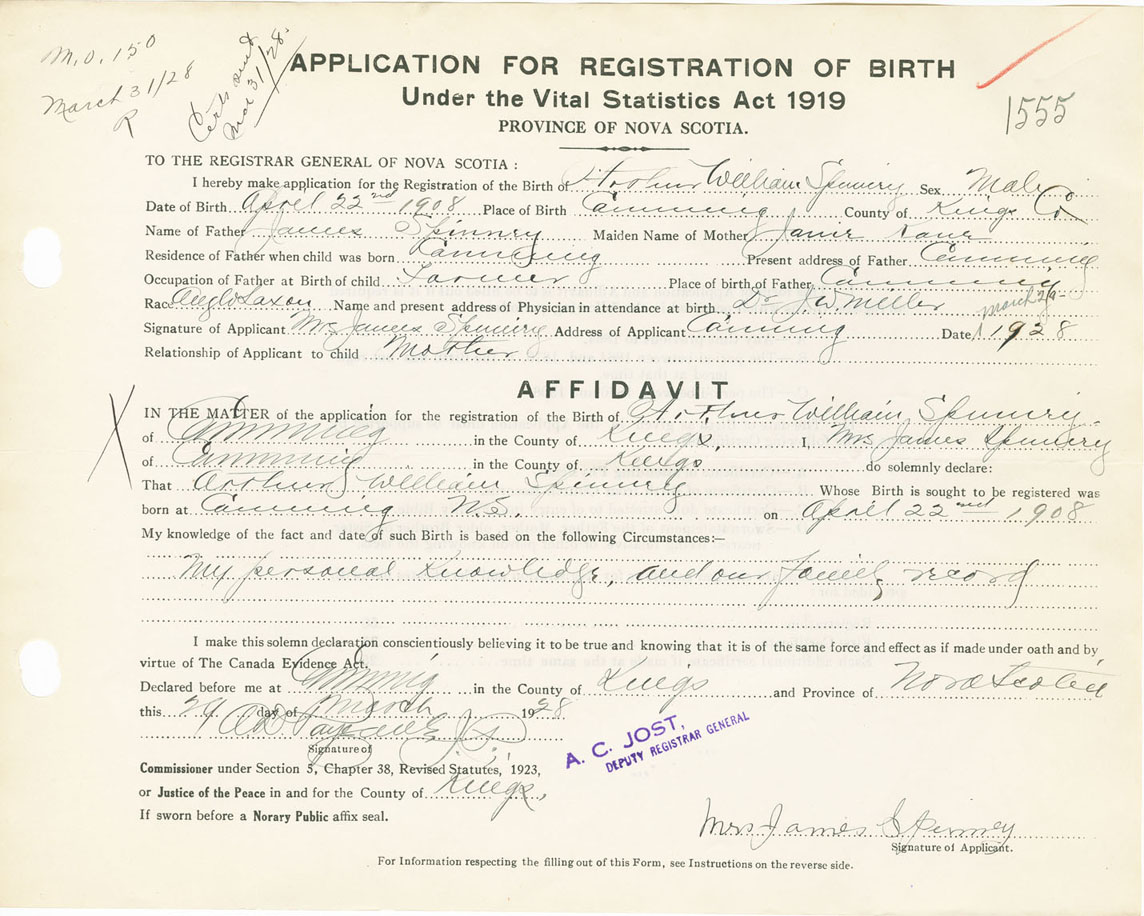 M.O. 150
March 31/28
R
Certs sent
Mar 31/28
1555
APPLICATION FOR REGISTRATION OF BIRTH
Under the Vital Statistics Act 1919
PROVINCE OF NOVA SCOTIA.
TO THE REGISTRAR GENERAL OF NOVA SCOTIA :
I hereby make application for the Registration of the Birth of Arthur William Spinney Sex Male
Date of Birth April 22nd 1908 Place of Birth Canning County of Kings Co
Name of Father James Spinney Maiden Name of Mother Jane
Residence of Father when child was born Canning Present address of Father Canning
Occupation of Father at Birth of child Farmer Place of birth of Father Canning
Race Anglo Saxon Name and present address of Physician in attendance at birth Dr J.W. Miller March 29
Signature of Applicant Mrs James Spinney Address of Applicant Canning Date 1928
Relationship of Applicant to child Mother
AFFIDAVIT
X
IN THE MATTER of the application for the registration of the Birth of Arthur William Spinney
of Canning in the County of Kings, I, Mrs James Spinney
of Canning in the County of Kings do solemnly declare:
That Arthur William Spinney Whose Birth is sought to be registered was
born at Canning N.S. on April 22nd 1908
My knowledge of the fact and date of such Birth is based on the following Circumstances:—
My personal Knowledge, and our Family record
I make this solemn declaration conscientiously believing it to be true and knowing that it is of the same force and effect as if made under oath and by
virtue of The Canada Evidence Act.
Declared before me at Canning in the County of Kings and Province of Nova Scotia
this 29 day of March 1928
Signature of
A. C. JOST,
DEPUTY REGISTRAR GENERAL
Commissioner under Section 5, Chapter 38, Revised Statutes, 1923,
or Justice of the Peace in and for the County of Kings,
If sworn before a Norary Public affix seal.
Mrs James Spinney
Signature of Applicant.
For Information respecting the filling out of this Form, see Instructions on the reverse side.